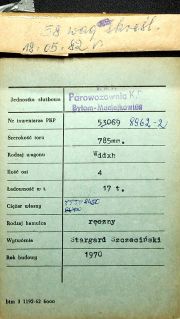 58 wag skreśl.
18.05.82 r
Jednostka służbowa Parowozownia K.P. Bytom-Maciejkowice
Nr inwentarza PKP 53069 8962-2
Szerokość toru 785mm.
Rodzaj wagonu Widxh
Ilość osi 4
Ładowność w t. 17 t.
Ciężar własny 8450
Rodzaj hamulca ręczny
Wytwórnia Stargard Szczeciński
Rok budowy 1970